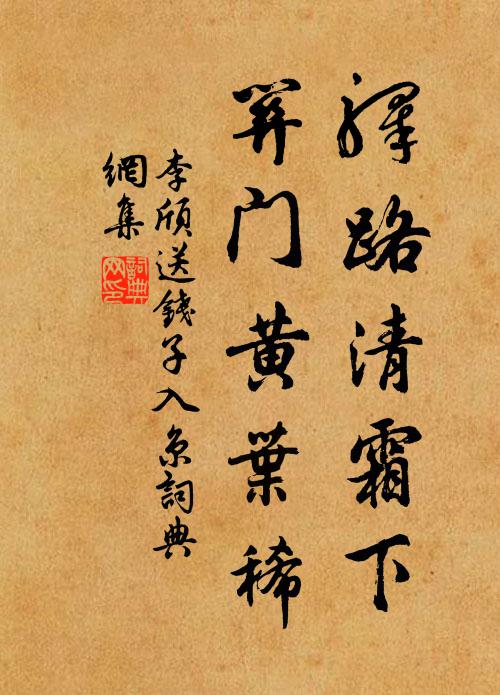 驛路清霜下
關门黄葉稀
李頎送錢子入京詞典
網集
詞典網印